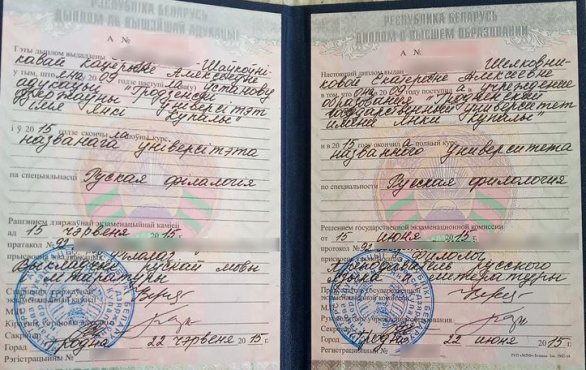 РЭСПУБЛІКА БЕЛАРУСЬ
ДЫПЛОМ АБ ВЫШЭЙШАЙ АДУКАЦЫІ
А №
Гэты дыплом выдадзены Шайкоўні-
кавай Кацярыне Аляксееўне
у тым, што яна 09 годзе паступіла ва ўстанову
адукацыі "Гродзенскі
дзяржаўны ўніверсітэт
імя Янкі Купалы"
і ў 2015 годзе скончыла поўны курс
названага ўніверсітэта
па спецыяльнасці Руская філалогія
Рашэннем дзяржаўнай экзаменацыйнай камісіі
ад 15 чэрвеня 2015 г.
пратакол № 92
Філолаг
Выкладчык рускай мовы
і літаратуры
М.П.
Сакратар
Горад Гродна 22 чэрвеня 2015 г.
Рэгістрацыйны №
РЕСПУБЛИКА БЕЛАРУСЬ
ДИПЛОМ О ВЫСШЕМ ОБРАЗОВАНИИ
А №
Настоящий диплом выдан Шелковни-
ковой Екатерине Алексеевне
в том, что она 09 году поступила в учреждение
образования "Гродненский
государственный университет
имени Янки Купалы"
и в 2015 году окончила полный курс
названного университета
по специальности Русская филология
Решением государственной экзаменационной комиссии
от 15 июня 2015 г.
протокол № 92
Филолог
Преподаватель русского
языка и литературы
М.П.
Секретарь
Город Гродно 22 июня 2015 г.
Регистрационный №